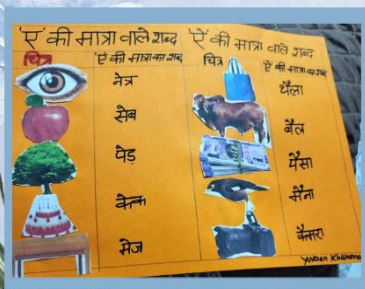 'ए' की मात्रा वाले शब्द 'ऐ' की मात्रा वाले शब्द
चित्र 'ए' की मात्रा का शब्द चित्र 'ऐ' की मात्रा का शब्द
नेत्र थैला
सेब बैल
पेड़ पैसा
केक मैना
मेज कैमरा